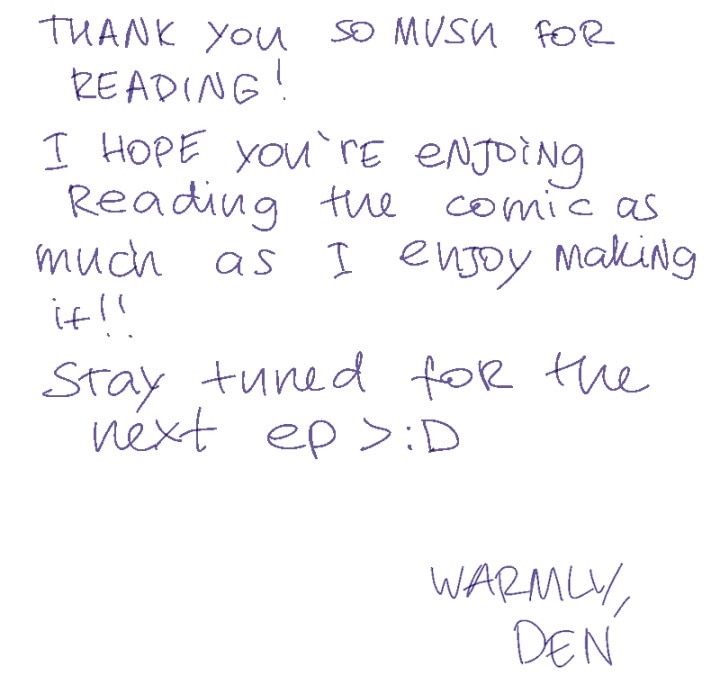 THANK YOU SO MUSH FOR
READING!
I HOPE YOU`rE eNJOiNg
Reading the comic as
much as I enjoy making
it!!
Stay tuned foR the
next ep >:D
WARMLY,
DEN